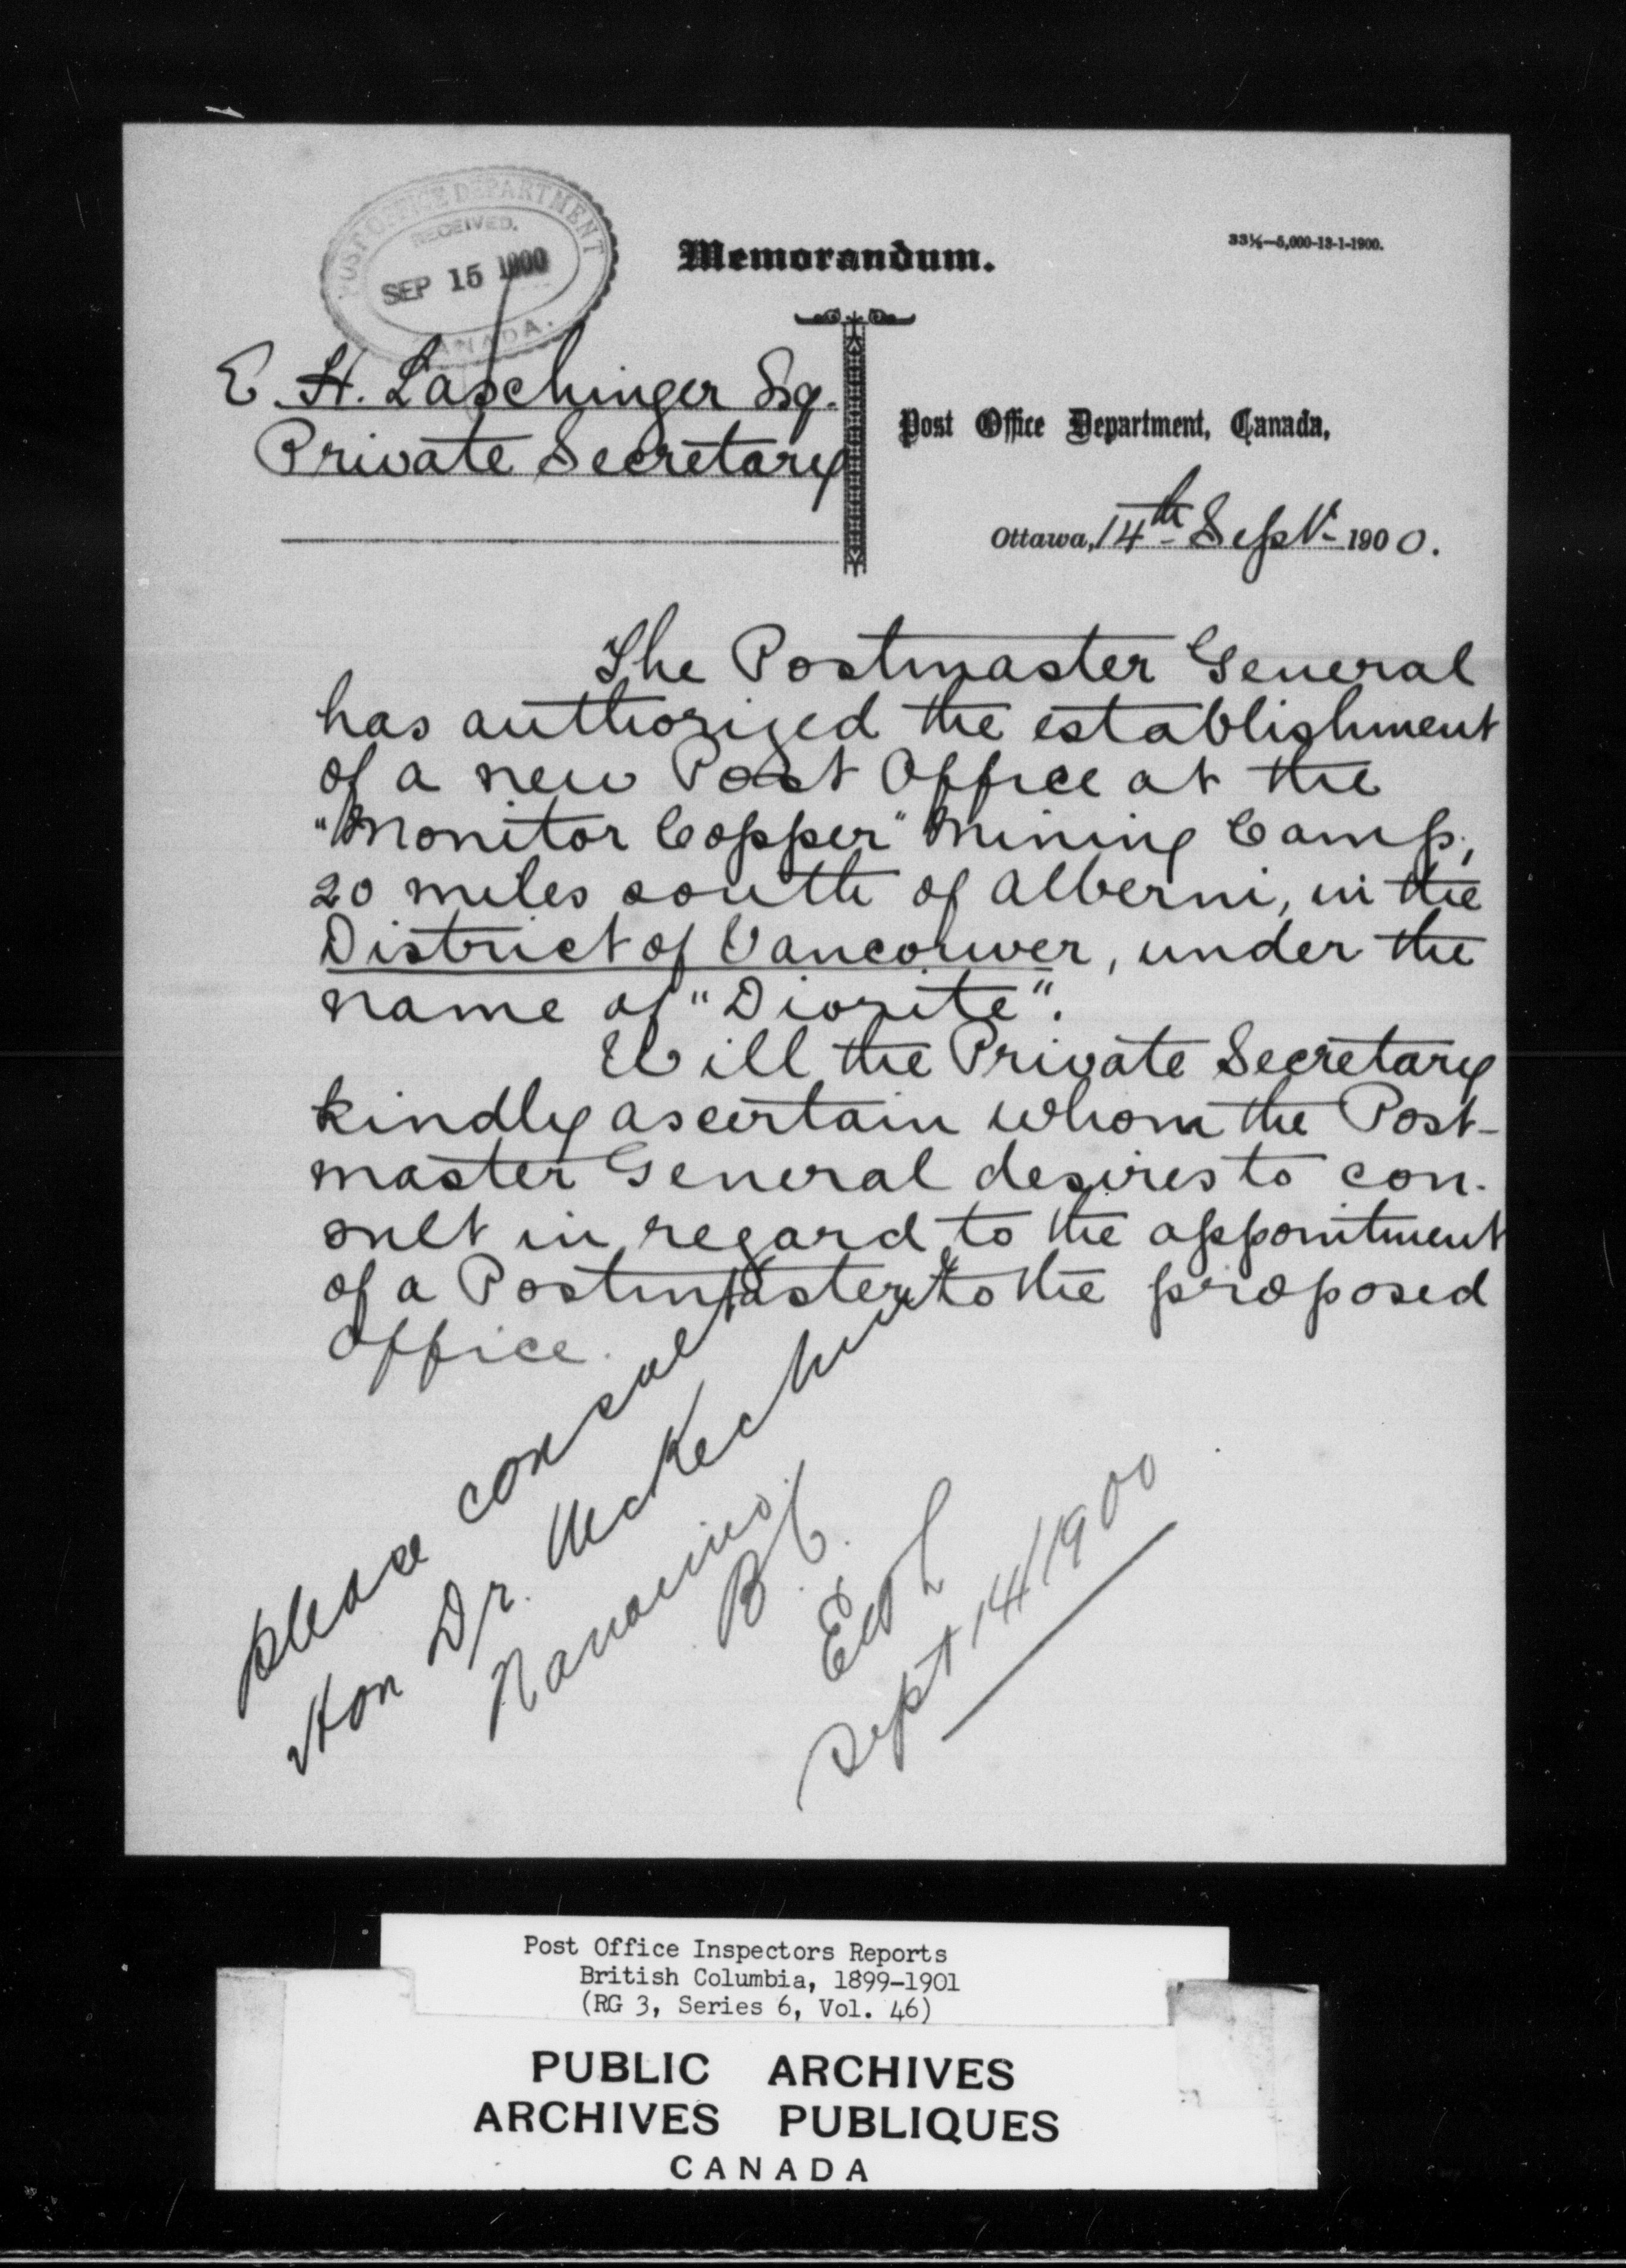 POST OFFICE DEPARTMENT
RECEIVED.
SEP 15 1900
CANADA.
Memorandum.
33½—5,000-13-1-1900.
E. H. Laschinger Esq.
Private Secretary
Post Office Department, Canada,
Ottawa, 14th Sept. 1900.
The Postmaster General
has authorized the establishment
of a new Post Office at the
"Monitor Copper" Mining Camp,
20 miles south of Alberni, in the
District of Vancouver, under the
name of "Diorite".
Will the Private Secretary
kindly ascertain whom the Post-
master General desires to con-
sult in regard to the appointment
of a Postmaster to the proposed
Office.
please consult
Hon Dr. McKechnie
Nanaimo
B.C.
Sept 14/1900
Post Office Inspectors Reports
British Columbia, 1899-1901
(RG 3, Series 6, Vol. 46)
PUBLIC ARCHIVES
ARCHIVES PUBLIQUES
CANADA